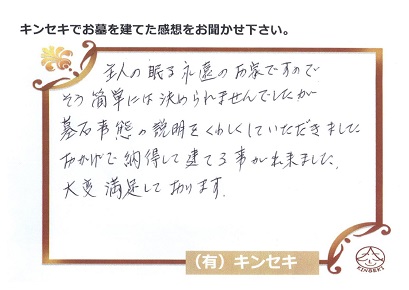 キンセキでお墓を建てた感想をお聞かせ下さい。
主人の眠る永遠のお家ですので
そう簡単には決められませんでしたが
墓石事態の説明をくわしくしていただきました
おかげで納得して建てる事が出来ました。
大変満足して おります。
(有)キンセキ
KINSEKI